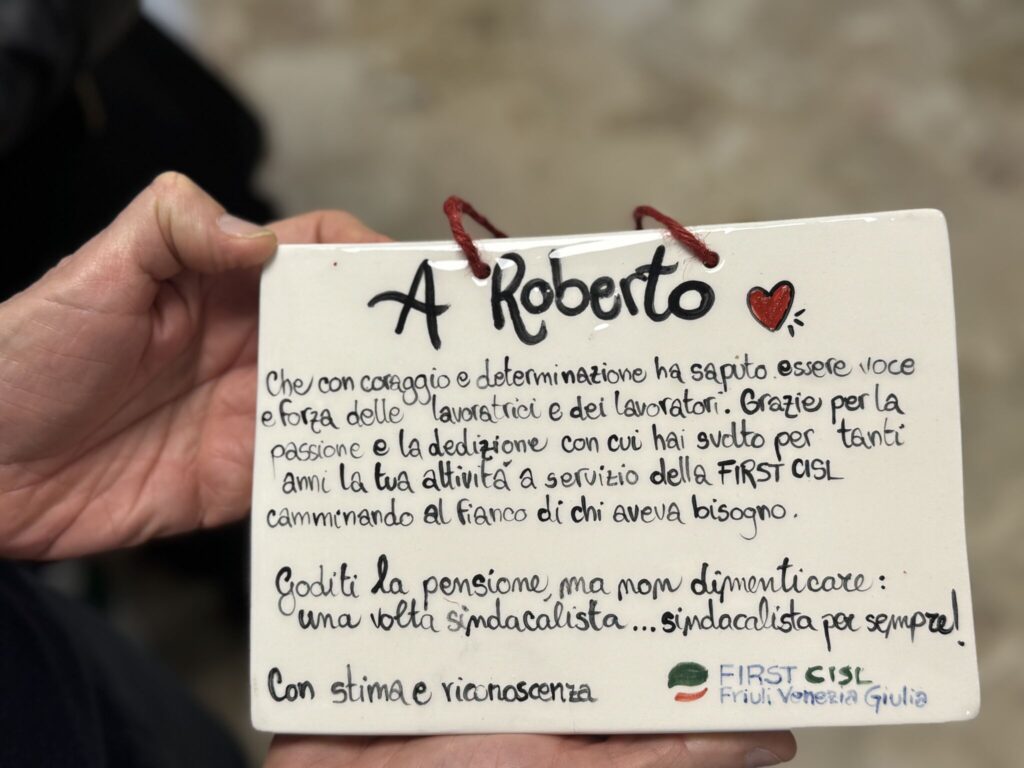 A Roberto
Che con coraggio e determinazione ha saputo essere voce
e forza delle lavoratrici e dei lavoratori. Grazie per la
passione e la dedizione con cui hai svolto per tanti
anni la tua attività a servizio della FIRST CISL
camminando al fianco di chi aveva bisogno.
Goditi la pensione, ma non dimenticare:
una volta sindacalista... sindacalista per sempre!
Con stima e riconoscenza
FIRST CISL
Friuli Venezia Giulia